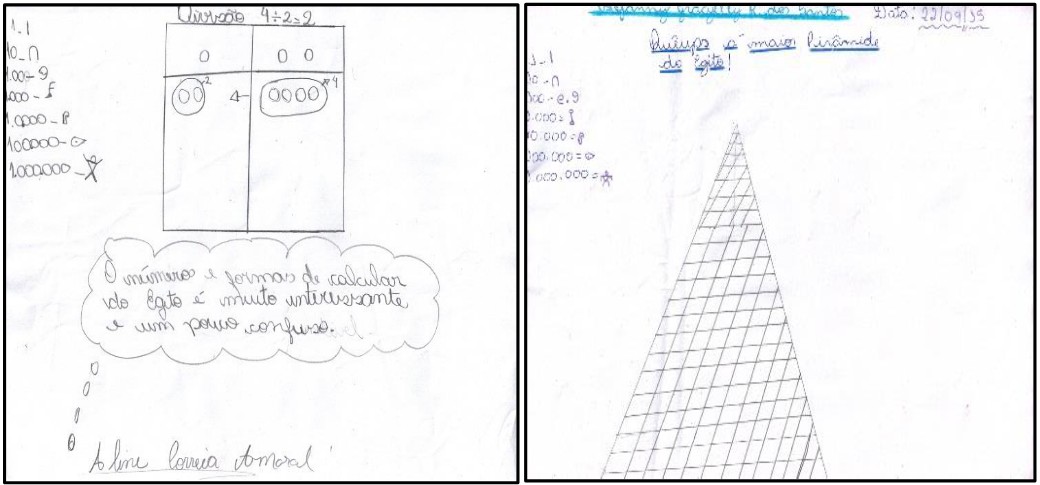 Divisão 4÷2=2
1.1
10_∩
100-9
1000-
10000-
100000-
1000000-
2
4
Ô números e formas de calcular
do Egito é muito interessante
e um pouco confuso.
Aline Correia Amaral
dos Santos
Data: 22/09/15
Quéops a maior Pirâmide
do Egito!
1_1
10-∩
100-e.9
1.000=
10.000=
100.000=
1.000.000=